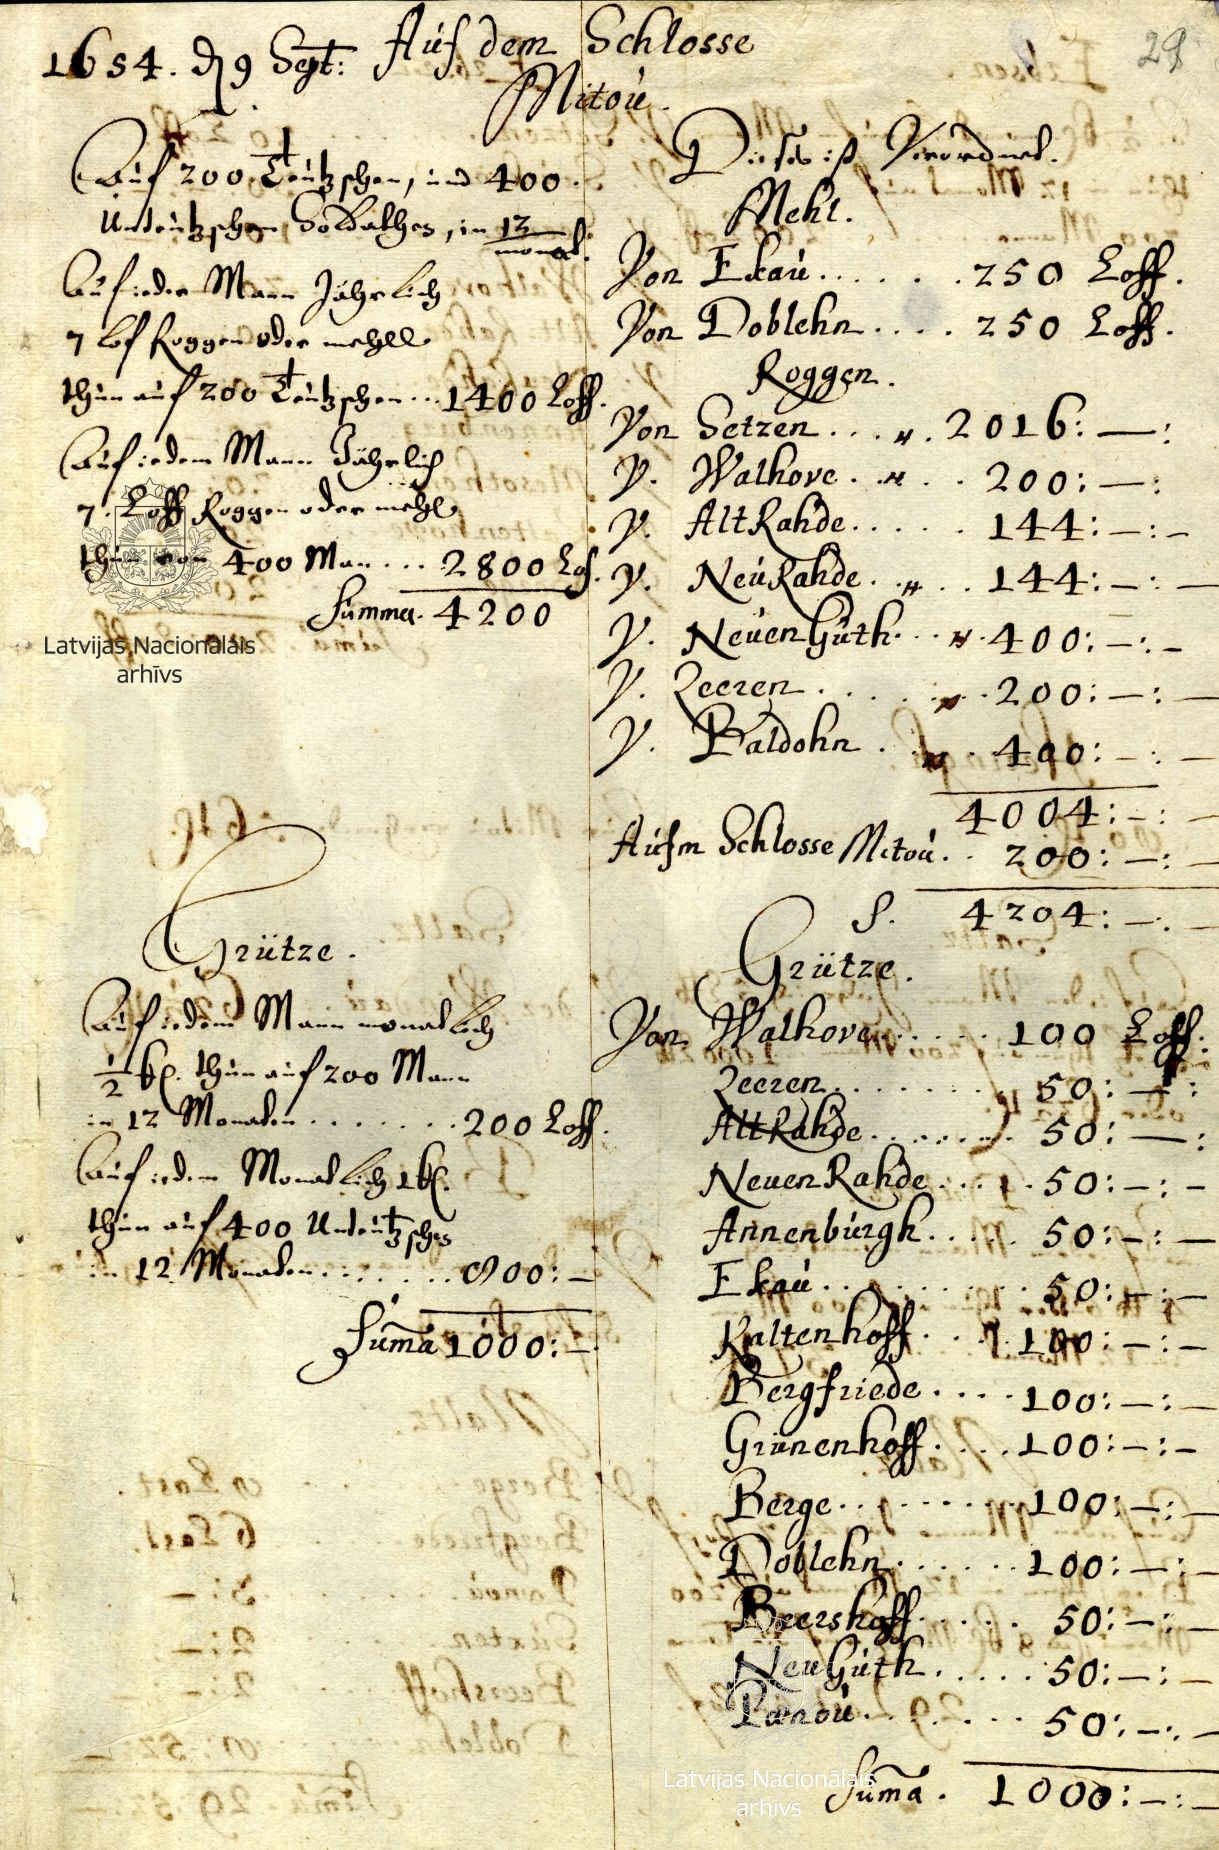 29
1654. d 9 Sept: Auf dem Schlosse
Mitou.
Auf 200 Teützschen, und 400.
Undeützschen Soldathen, in 12
monat.
Auf ieder Mann Jährlich
7 lof Roggen oder mehll
thun auf 200 Teützschen... 1400 Loff.
Auf iedem Mann Jährlich
7. Loff Roggen oder mehl
thun von 400 Man... 2800 Lof.
Summa. 4200
Grütze.
Auf iedem Mann monatlich
1/2 k. thun auf 200 Mann
in 12 Monaten....... 200 Loff.
Auf iedem Monatlich 1 k.
thun auf 400 Undeützschen
in 12 Monaten....... 800:—
Suma 1000:—
Dieses ist Verordnet.
Mehl.
Von Ekau...... 250 Loff.
Von Doblehn.... 250 Loff.
Roggen.
Von Setzen.... 2016:—:
V. Walhove.... 200:—:
V. Alt Rahde..... 144:—:—
V. Neü Rahde.... 144:—:—
V. Neüen Güth.... 400:—:—
V. Zeeren....... 200:—:—
V. Baldohn.... 400:—:—
4004:—:—
Aufm Schlosse Mitou.. 200:—:—
S. 4204:—:—
Grütze.
Von Walhove...... 100 Loff.
Zeeren........ 50:—:
Alt Rahde....... 50:—:
Neuen Rahde..... 50:—:—
Annenbürgh..... 50:—:—
Ekau.......... 50:—:—
Kaltenhoff.... 100:—:—
Bergfriede.... 100:—:—
Grünenhoff.... 100:—:—
Berge........ 100:—:—
Doblehn...... 100:—:—
Beershoff..... 50:—:—
Neu Güth..... 50:—:—
Pankou....... 50:—:—
Suma. 1000:—:—
Latvijas Nacionālais
arhīvs
Latvijas Nacionālais
arhīvs